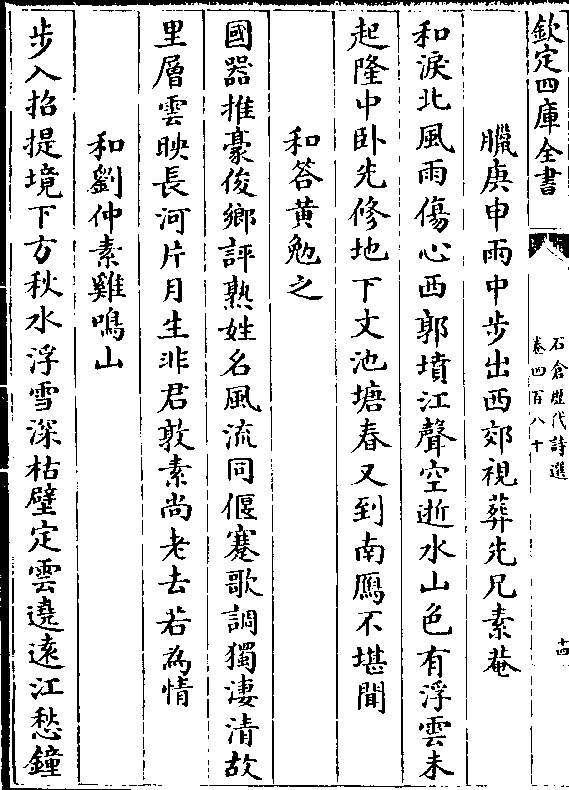 欽定四庫全書
石倉歷代詩選
卷四百八十
十四
臘庚申雨中步出西郊視葬先兄素菴
和淚北風雨傷心西郭墳江聲空逝水山色有浮雲未
起隆中卧先修地下文池塘春又到南鴈不堪聞
和答黄勉之
國器推豪俊鄉評熟姓名風流同偃蹇歌調獨淒清故
里層雲映長河片月生非君敦素尚老去若為情
和劉仲素雞鳴山
步入招提境下方秋水浮雪深枯壁定雲遶遠江愁鐘